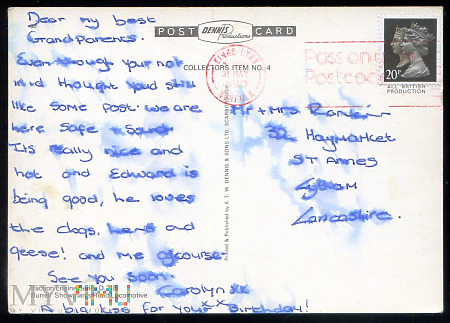 Dear my best
Grandparents.
Even though your not
in id thought you'd still
like some post. we are
here safe + Sound
Its really nice and
hot and Edward is
being good, he loves
the dogs, hens and
geese! and me ofcourse.
See you soon.
Carolyn xx
A big kiss for your Birthday!
POST CARD
DENNIS
Productions
COLLECTORS ITEM NO. 4
Printed & Published by E. T. W. DENNIS & SONS LTD., SCARBOROUGH
KINGS LYNN
MAY
NORFOLK
Pass on
Postcode
20P
ALL BRITISH
PRODUCTION
Mr + Mrs Rankin
32 Haymarket
ST ANNES
Lytham
Lancashire.
Traction Engine Series D.
Burrell Showman's Road Locomotive